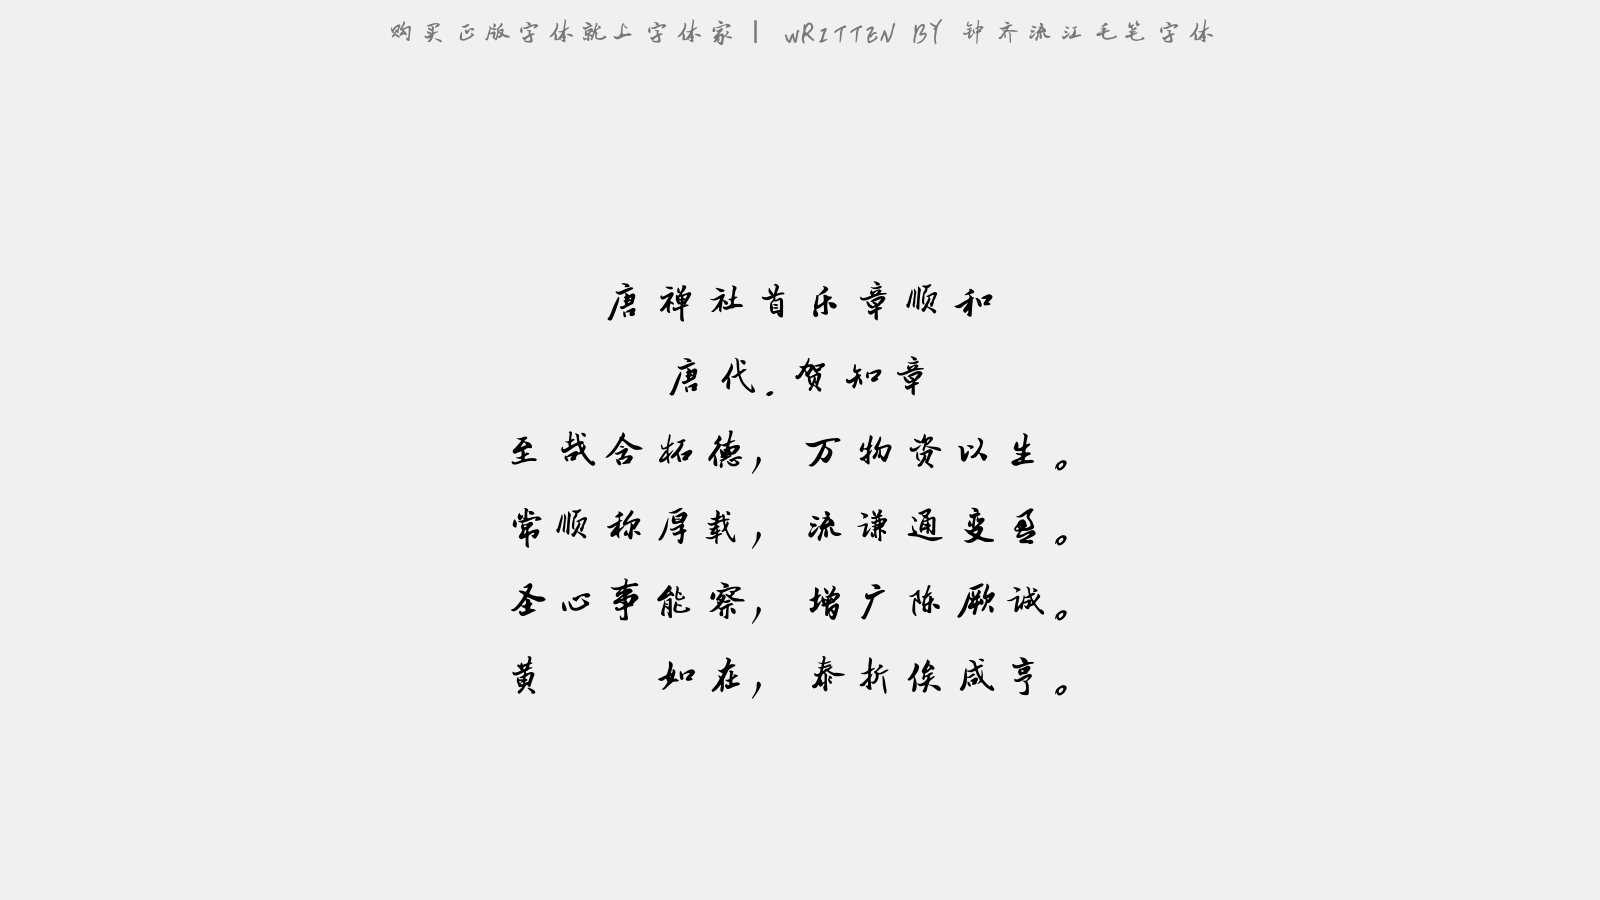 购买正版字体就上字体家 | wRITTEN BY 钟齐流江毛笔字体
唐禅社首乐章顺和
唐代.贺知章
至哉含柘德，万物资以生。
常顺称厚载，流谦通变盈。
圣心事能察，增广陈厥诚。
黄 如在，泰折俟咸亨。